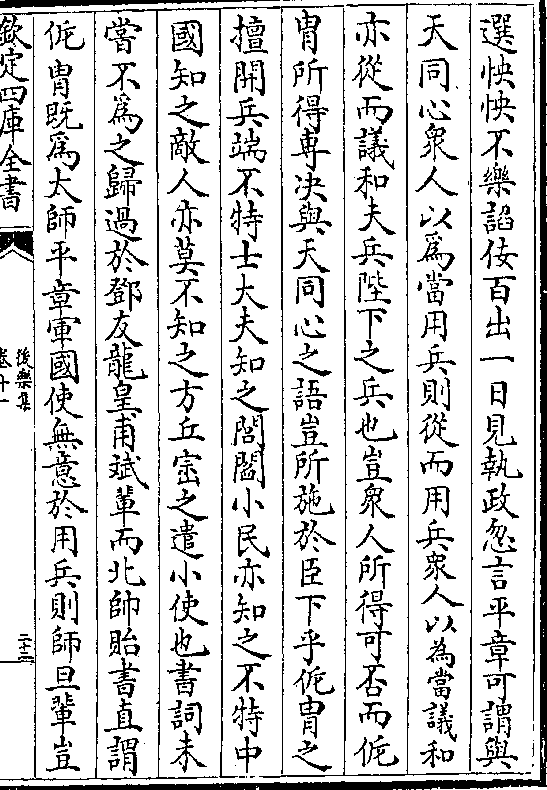 選怏怏不樂諂佞百出一日見執政忽言平章可謂與
天同心衆人以爲當用兵則從而用兵衆人以為當議和
亦從而議和夫兵陛下之兵也豈衆人所得可否而侂
胄所得專决與天同心之語豈所施於臣下乎侂胄之
擅開兵端不特士大夫知之閭閻小民亦知之不特中
國知之敵人亦莫不知之方丘崈之遣小使也書詞未
嘗不爲之歸過於鄧友龍皇甫斌輩而北帥貽書直謂
侂胄既爲太師平章軍國使無意於用兵則師旦輩豈
欽定四庫全書
後樂集
卷十一
二十二